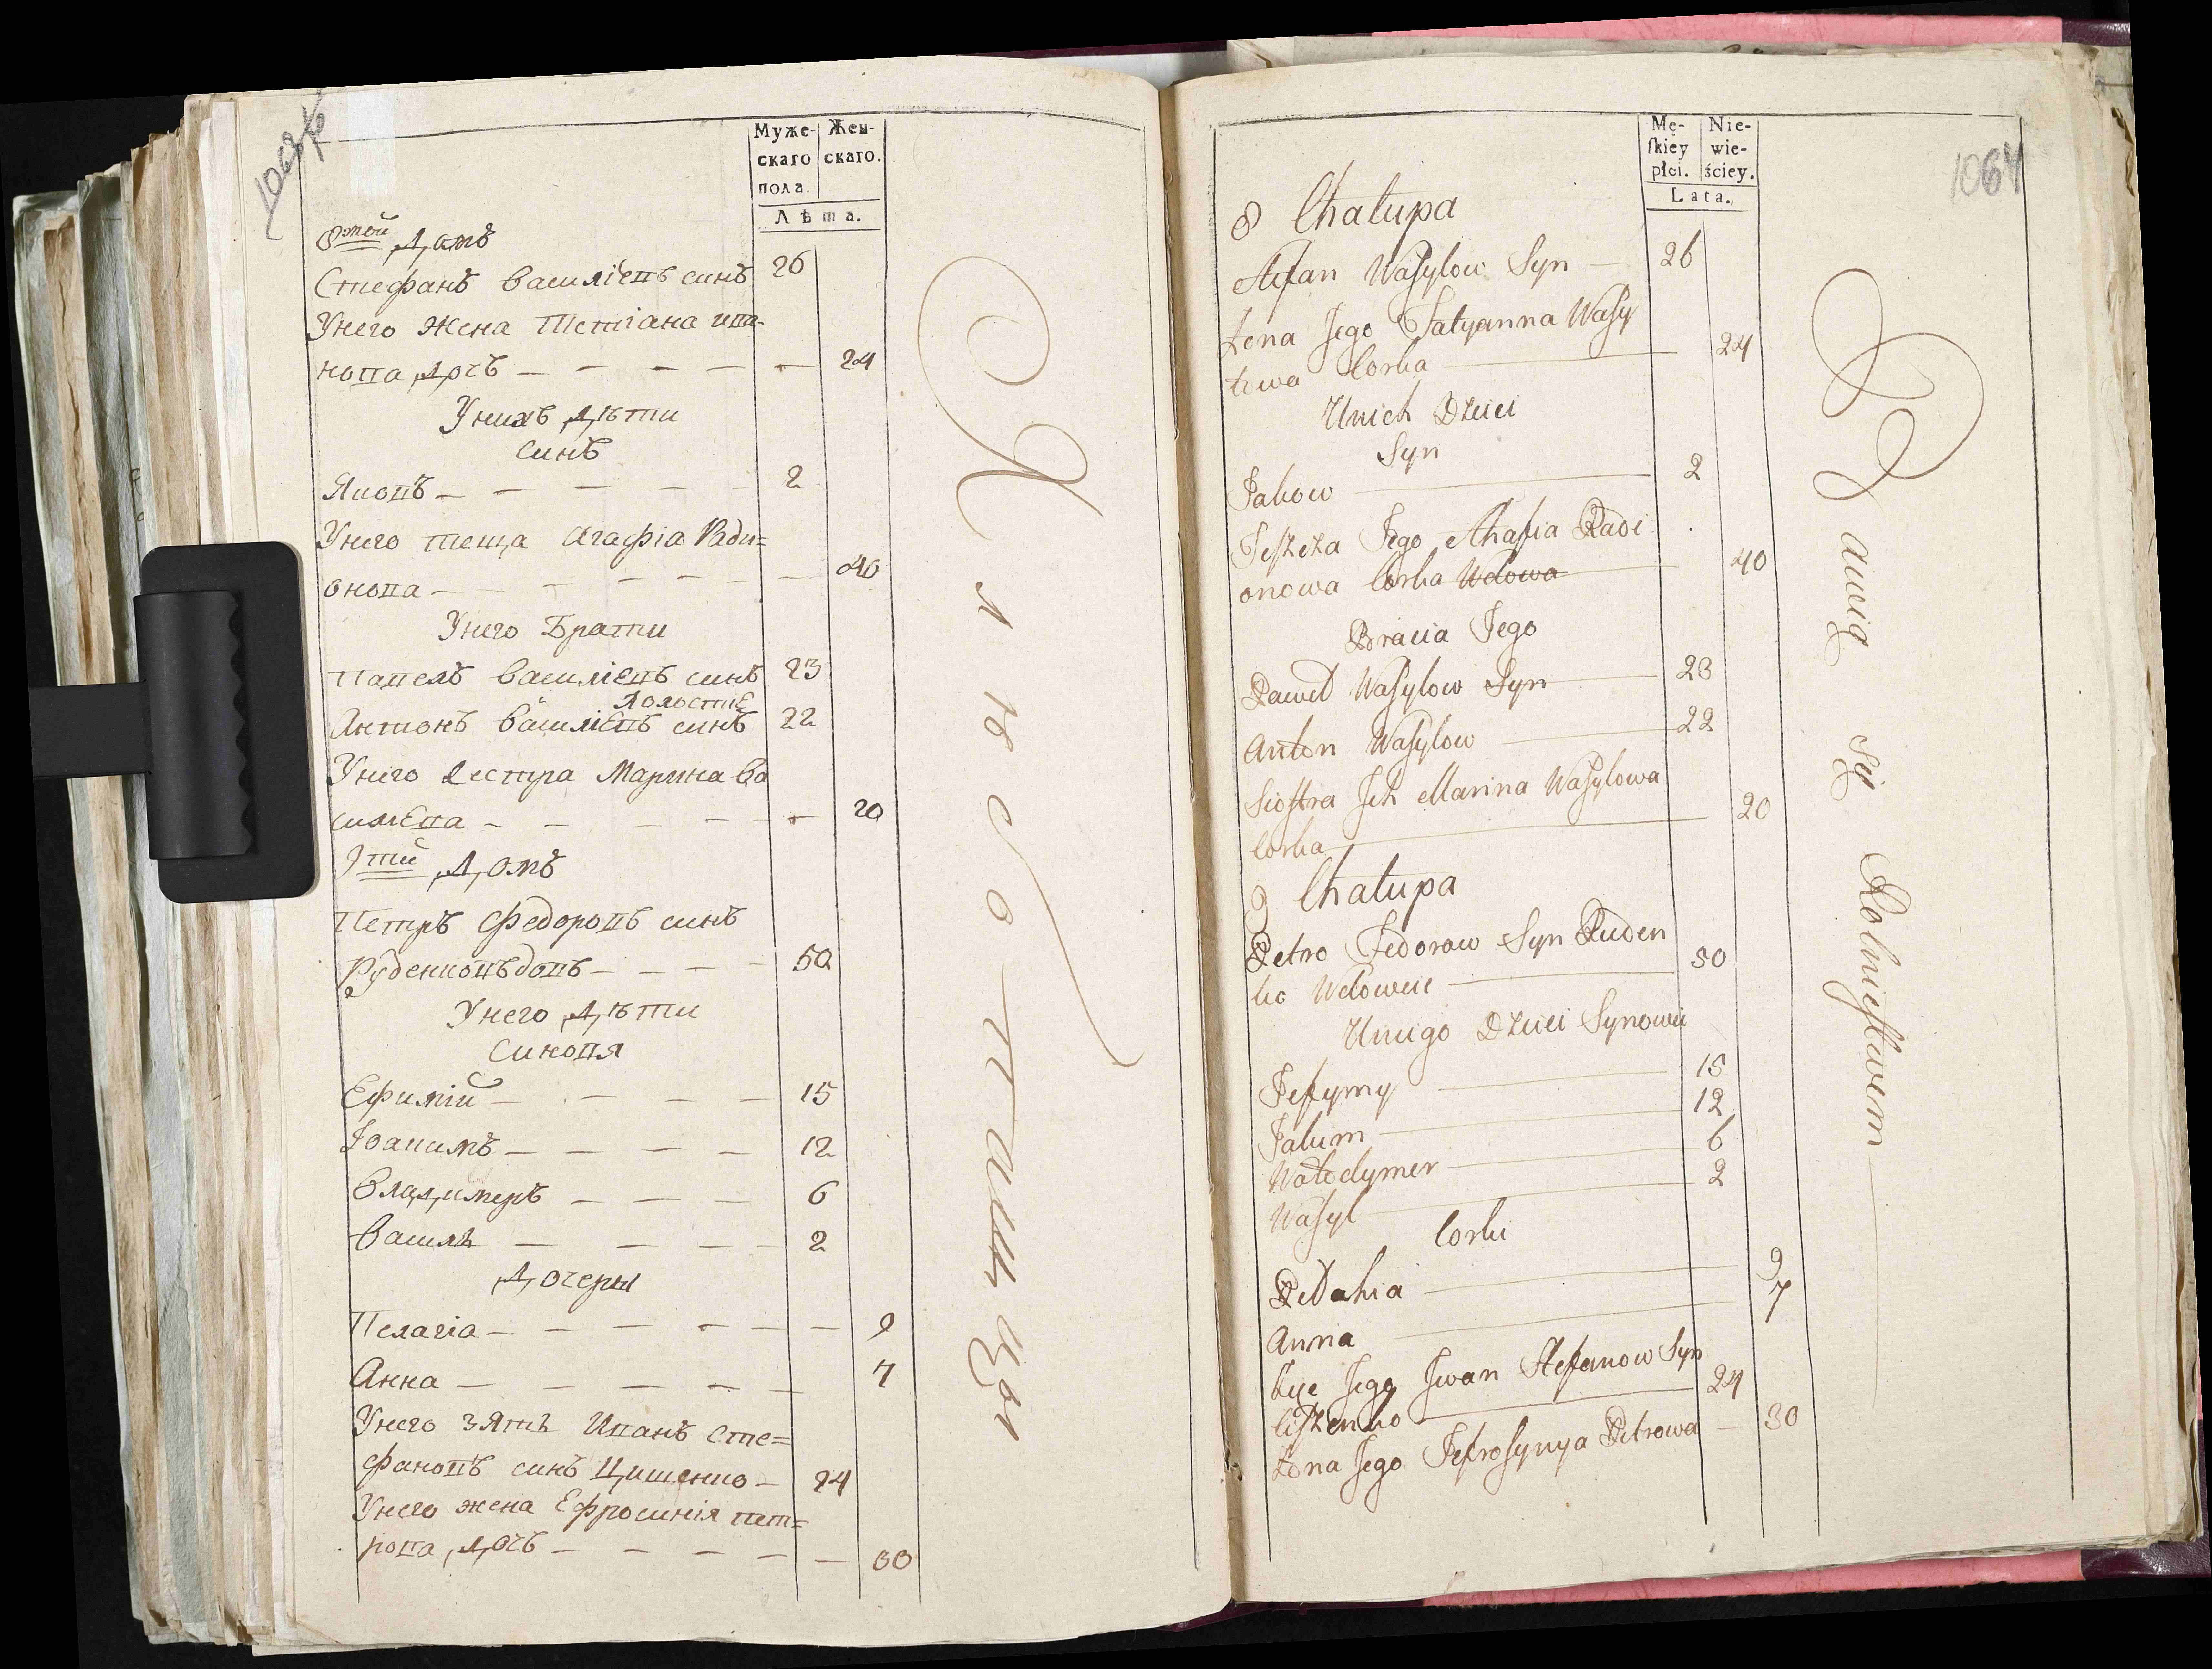 Муже-
скаго
пола.
Жен-
скаго.
Лѣта.
8мой Домъ
Стефанъ Василіевъ синъ 26
Унего Жена Тетіана ива-
нова дочъ — — — — — 24
Унихъ дѣти
синъ
Яковъ — — — — — 2
Унего теща АгафіаРади=
онова — — — — — 40
Унего Брати
Павелъ Василіевъ синъ 23
Холостиє
Антонъ Василіевъ синъ 22
Унего Сестра Марина Ва
силіева — — — — — 20
9тий Домъ
Петръ Федоровъ синъ
Руденко въдовъ — — — — 50
Унего дѣти
Синовя
Ефимій — — — — 15
Іоакимъ — — — — 12
Владимеръ — — — 6
Василь — — — — 2
Дочеры
Пелагіа — — — — — — 9
Анна — — — — — 7
Унего зять Иванъ Сте=
фановъ синъ Цишенко — 24
Унего жена Ефросинія пет=
рова дочъ — — — — — 30
Хлѣбопашцы
1064
Mę-
ſkiey
płci.
Nie-
wie-
ściey.
Lata.
8 Chałupa
Stefan Wasylow Syn — 26
Żona Jego Tatyanna Wasy
łowa Corka 24
Unich Dzieci
Syn
Jakow 2
Teszcza Jego Ahafia Radi
onowa Corka Wdowa 40
Bracia Jego
Paweł Wasylow Syn 23
Anton Wasylow 22
Siostra Ich Marina Wasylowa
Corka 20
9 Chałupa
Petro Fedorow Syn Ruden
ko Wdowiec 50
Uniego Dzieci Synowie
Jefymy 15
Jakim 12
Wołodymer 6
Wasyl 2
Corki
Pełahia 9
Anna 7
Zięć Jego Iwan Stefanow Syn
Ciszenko 24
Żona Jego Jefrosynya Petrowa — 30
Bawią się Rolnictwem